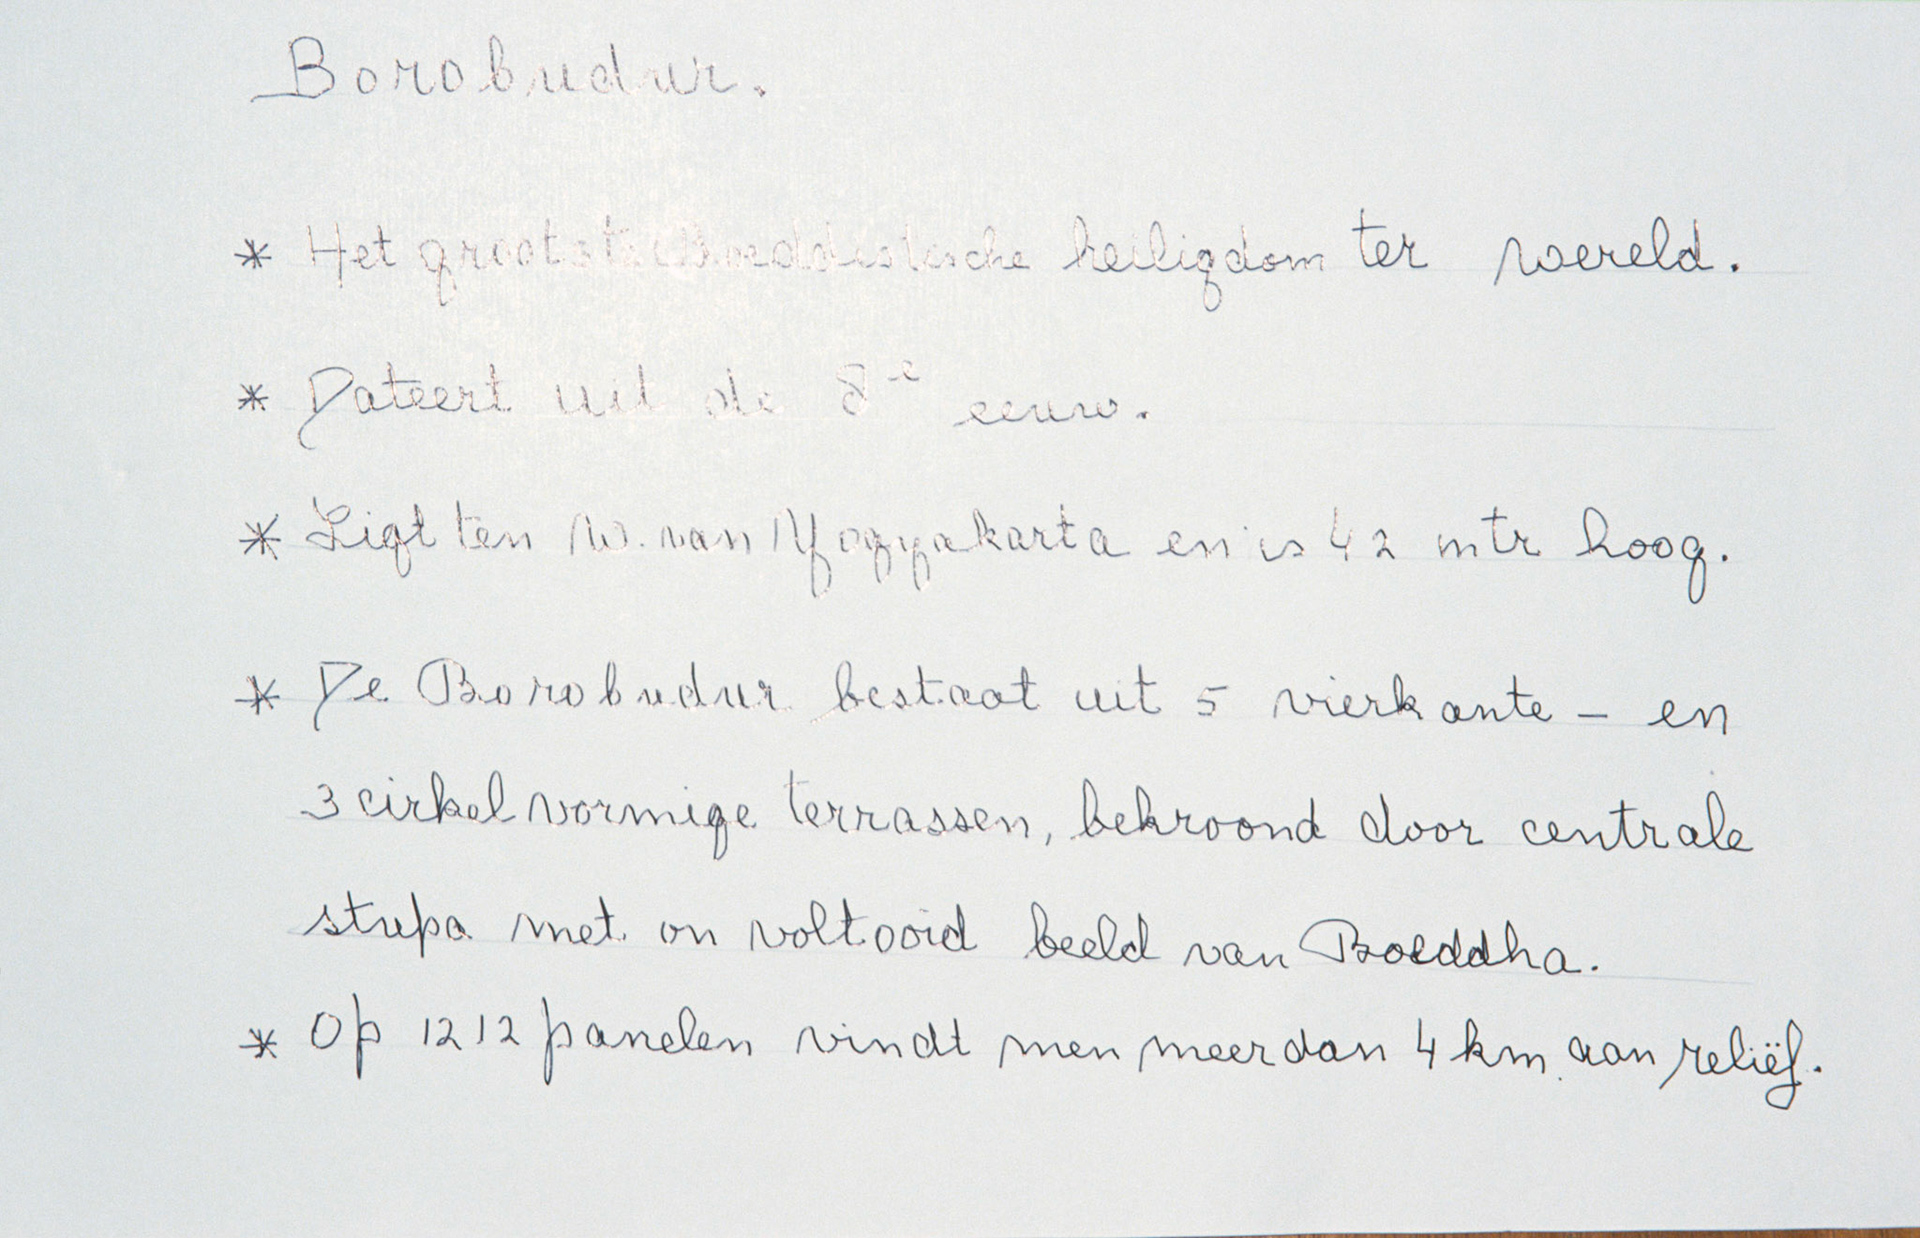 Borobudur.
* Het grootste Boeddistische heiligdom ter wereld.
* Dateert uit de 8e eeuw.
* Ligt ten W. van Yogyakarta en is 42 mtr hoog.
* De Borobudur bestaat uit 5 vierkante - en
3 cirkelvormige terrassen, bekroond door centrale
stupa met onvoltooid beeld van Boeddha.
* Op 1212 panelen vindt men meer dan 4 km. aan reliëf.